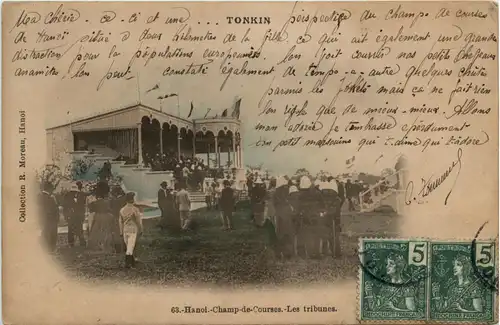 Ma Chérie, ce-ci et une ... TONKIN perspective du champ de courses
de Hanoi situé a deux kilometre de la ville ce qui ait egalement une grande
distraction pour la population europeenne. l'on fait courire nos petits chevaux
anamites l'on peut constaté egalement de temps-a-autre quelques chute
parmis les jokés mais ça ne fait rien
l'on rigole que de mieux-mieux. Allons
mon adorée je t'embrasse éperdument
ton petit marsouin qui t'aime qui t'adore
Collection R. Moreau, Hanoi
5
5
INDOCHINE FRANÇAISE
63.-Hanoi.-Champ-de-Courses.-Les tribunes.